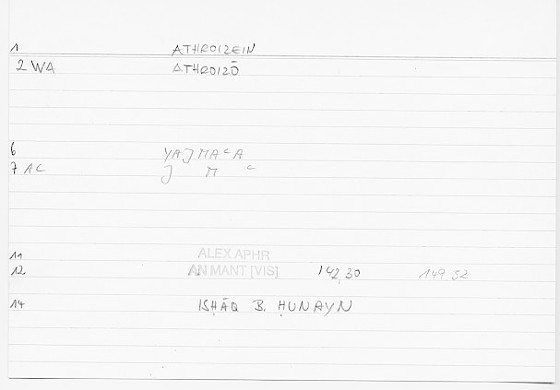 1 ATHROIZEIN
2 WA ATHROIZŌ
6 YAJMAʿA
7 AC J M ʿ
11 ALEX APHR
12 AN MANT [VIS] 142,30 149 32
14 ISḤĀQ B. ḤUNAYN